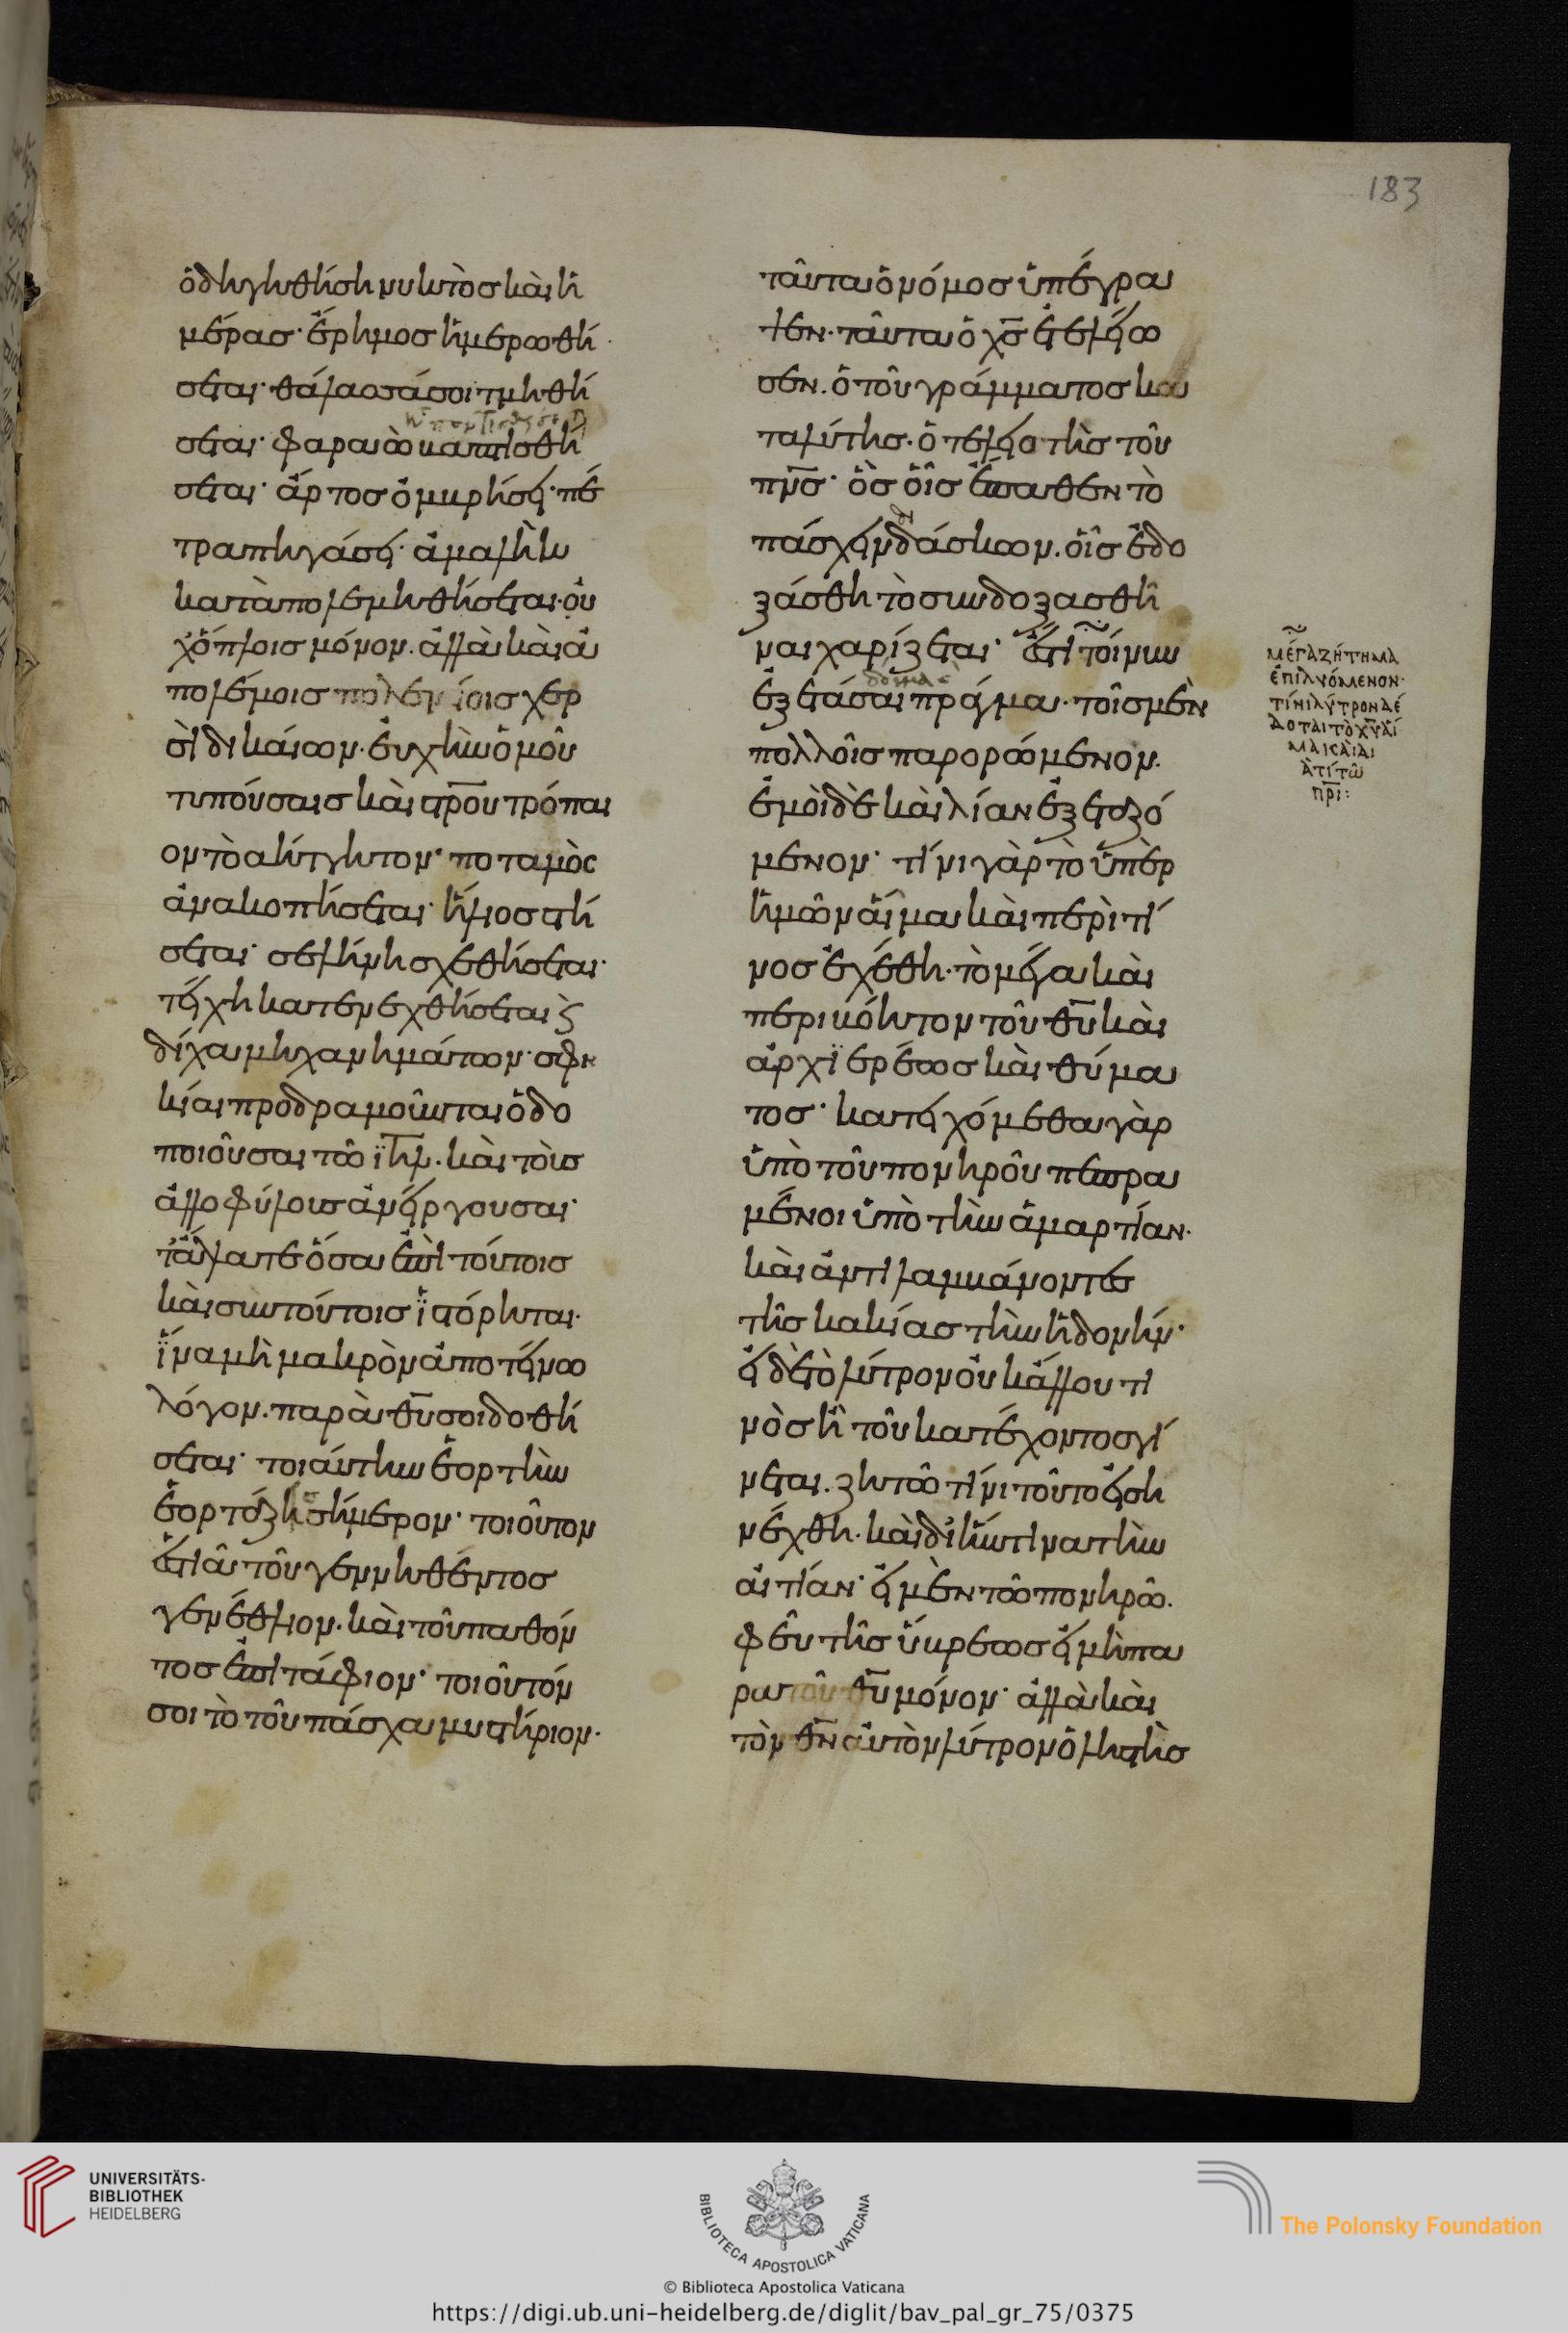 ὁδηγηθήσῃ νυκτὸς καὶ ἡ
μέρας· ἔρημος ἡμερωθή
σεται· θάλασσά σοι τμηθή
σεται· φαραὼ βαπτισθή
σεται· ἄρτος ὀμβρήσει· πέ
τρα πηγάσει· ἀμαλὴκ
καταπολεμηθήσεται· οὐ
χ᾽ ὅπλοις μόνον. ἀλλὰ καὶ ἀ
πολέμοις πολεμίοις χερ
σὶ δικαίων· εὐχὴν ὁμοῦ
τυπούσαις καὶ στρου τρόπαι
ον τὸ ἀήττητον· ποταμὸς
ἀνακοπήσεται· ἥλιος στή
σεται· σελήνη σχεθήσεται·
τείχη κατενεχθήσεται ϗ
δίχα μηχανημάτων· σφη
κίαι προδραμοῦνται ὁδο
ποιοῦσαι τῶ ϊηλ. καὶ τοὺς
ἀλλοφύλους ἀνείργουσαι·
τἄλλατε ὅσα ἐπὶ τούτοις
καὶ συν τούτοις ϊστόρηται·
ϊνα μὴ μακρὸν ἀποτείνω
λόγον. παρὰ θυ σοι δοθή
σεται· τοιαύτην ἑορτὴν
ἑορτάζεις σήμερον· τοιοῦτον
ἑστιᾶ τοῦ γεννηθέντος
γενέθλιον. καὶ τοῦ παθόν
τος ἐπιτάφιον· τοιοῦτόν
σοι τὸ τοῦ πάσχα μυστήριον·
183
ταῦτα ὁ νόμος ὑπέγρα
ψεν· ταῦτα ὁ χς ἐτελείω
σεν. ὁ τοῦ γράμματος κα
ταλύτης· ὁ τελειωτὴς τοῦ
πνς· ὃς οἷς ἔπαθεν τὸ
πάσχειν διδάσκων. οἷς ἐδο
ξάσθη τὸ συνδοξασθῆ
ναι χαρίζεται· ἔστι τοίνυν
ἐξετάσαι πρᾶγμα· δόγμα τοῖς μὲν
πολλοῖς παρορώμενον.
ἐμοὶ δὲ καὶ λίαν ἐξεταζό
μενον· τίνι γὰρ τὸ ὑπὲρ
ἡμῶν αἷμα καὶ περὶ τί
νος ἐχέθη· τὸ μέγα καὶ
περιβόητον τοῦ θυ καὶ
ἀρχϊερέως καὶ θύμα
τος· κατειχόμεθα γὰρ
ὑπὸ τοῦ πονηροῦ πεπρα
μένοι ὑπὸ τὴν ἁμαρτίαν·
καὶ ἀντιλαμβάνοντες
τῆς κακίας τὴν ἡδονήν·
εἰ δὲ τὸ λύτρον οὐκ ἄλλου τι
νὸς ἢ τοῦ κατέχοντος γί
νεται. ζητῶ τίνι τοῦτο εἰση
νέχθη· καὶ δι᾽ ἥντινα τὴν
αἰτίαν· εἰ μὲν τῶ πονηρῶ.
φεῦ τῆς ὕβρεως εἰ μὴ πα
ρὰ τοῦ θυ μόνον· ἀλλὰ καὶ
τὸν θν αὐτὸν λύτρον ὁ ληστὴς
μέγα ζήτημα
ἐπιλυόμενον·
τίνι λύτρον δέ
δοται τὸ χυ αἷ
μα καὶ δι
ὰ τί τῶ
πρι:
UNIVERSITÄTS-
BIBLIOTHEK
HEIDELBERG
BIBLIOTECA APOSTOLICA VATICANA
© Biblioteca Apostolica Vaticana
The Polonsky Foundation
https://digi.ub.uni-heidelberg.de/diglit/bav_pal_gr_75/0375